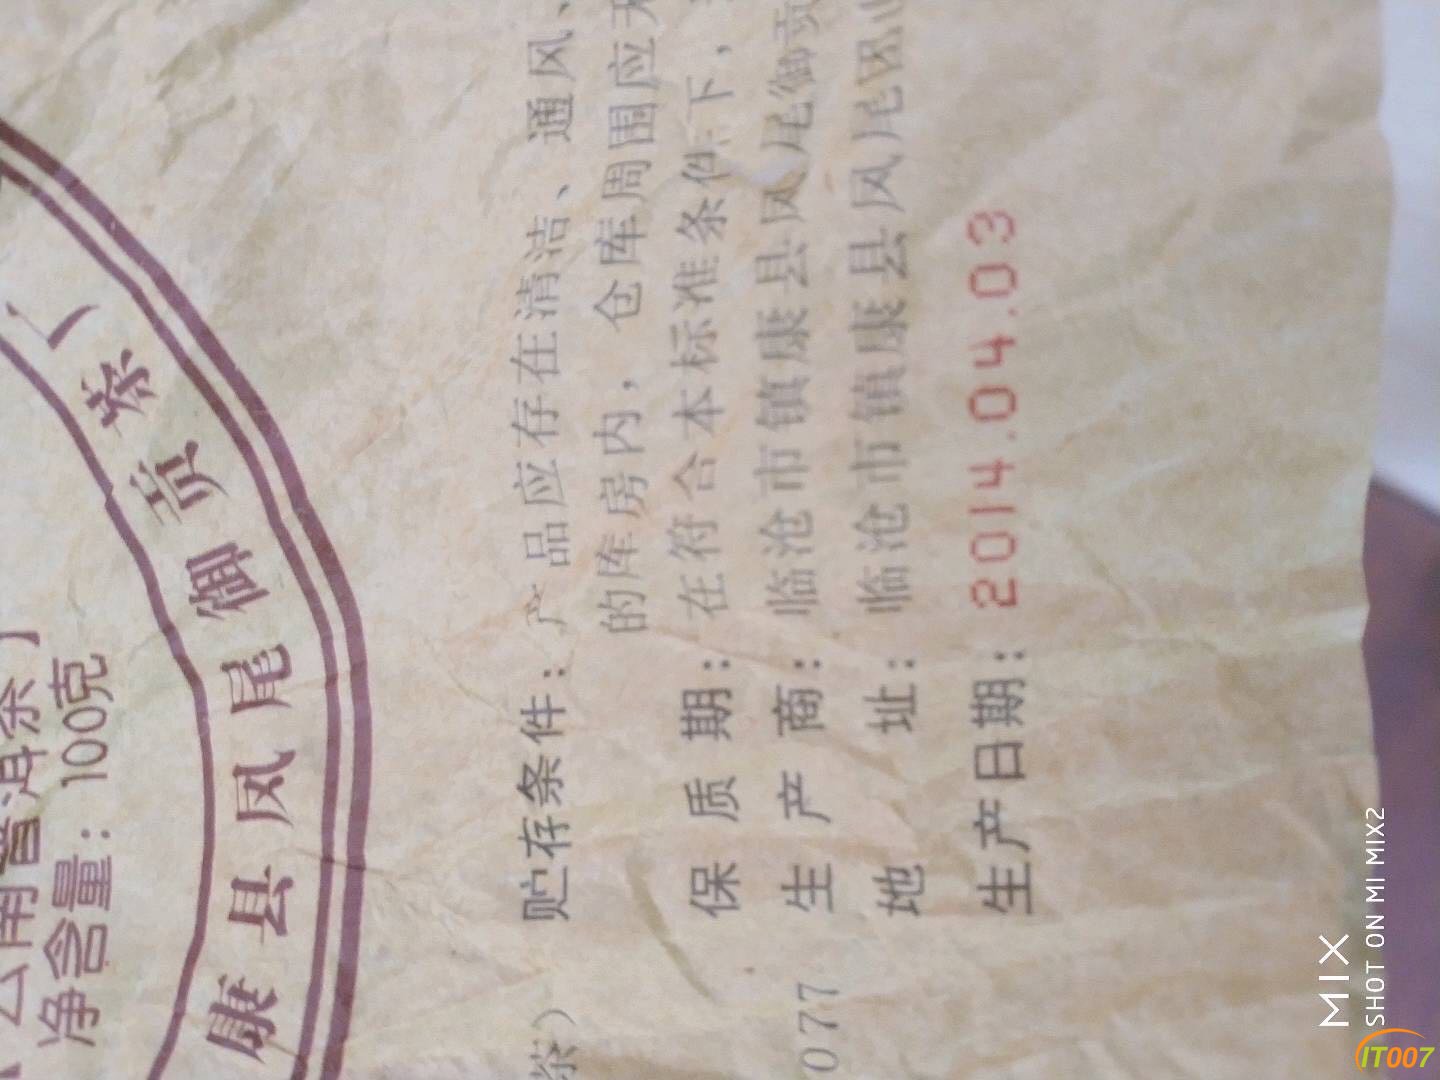 云南普洱茶】
净含量：100克
康县凤尾御贡茶（
茶）
077
贮存条件：产品应存在清洁、通风、
的库房内，仓库周围应无
保质期：在符合本标准条件下，
生产商：临沧市镇康县凤尾御贡
地址：临沧市镇康县凤尾
生产日期：2014.04.03
MIX
SHOT ON MI MIX2
IT007